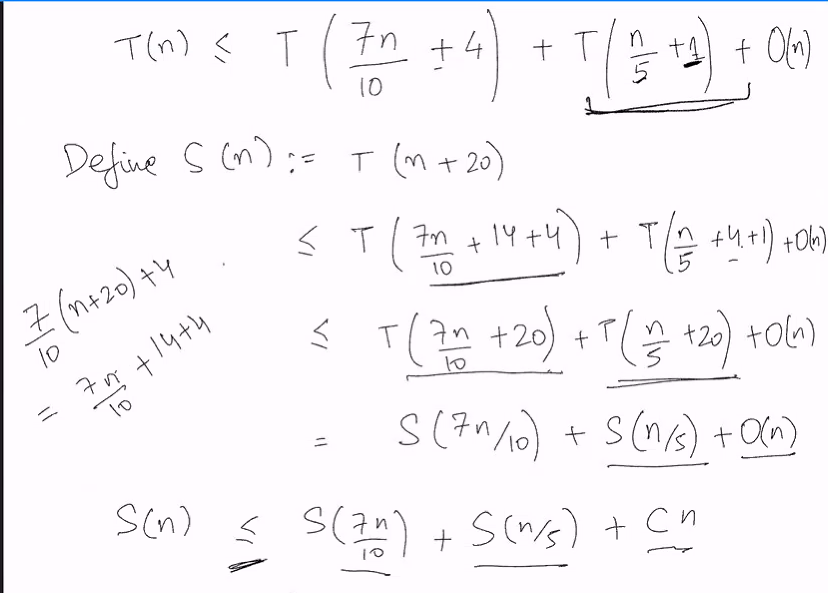 T(n) ≤ T(7n/10 + 4) + T(n/5 + 1) + O(n)
Define S(n) := T(n + 20)
≤ T(7n/10 + 14 + 4) + T(n/5 + 4 + 1) + O(n)
7/10 (n+20) + 4
= 7n/10 + 14 + 4
≤ T(7n/10 + 20) + T(n/5 + 20) + O(n)
= S(7n/10) + S(n/5) + O(n)
S(n) ≤ S(7n/10) + S(n/5) + Cn